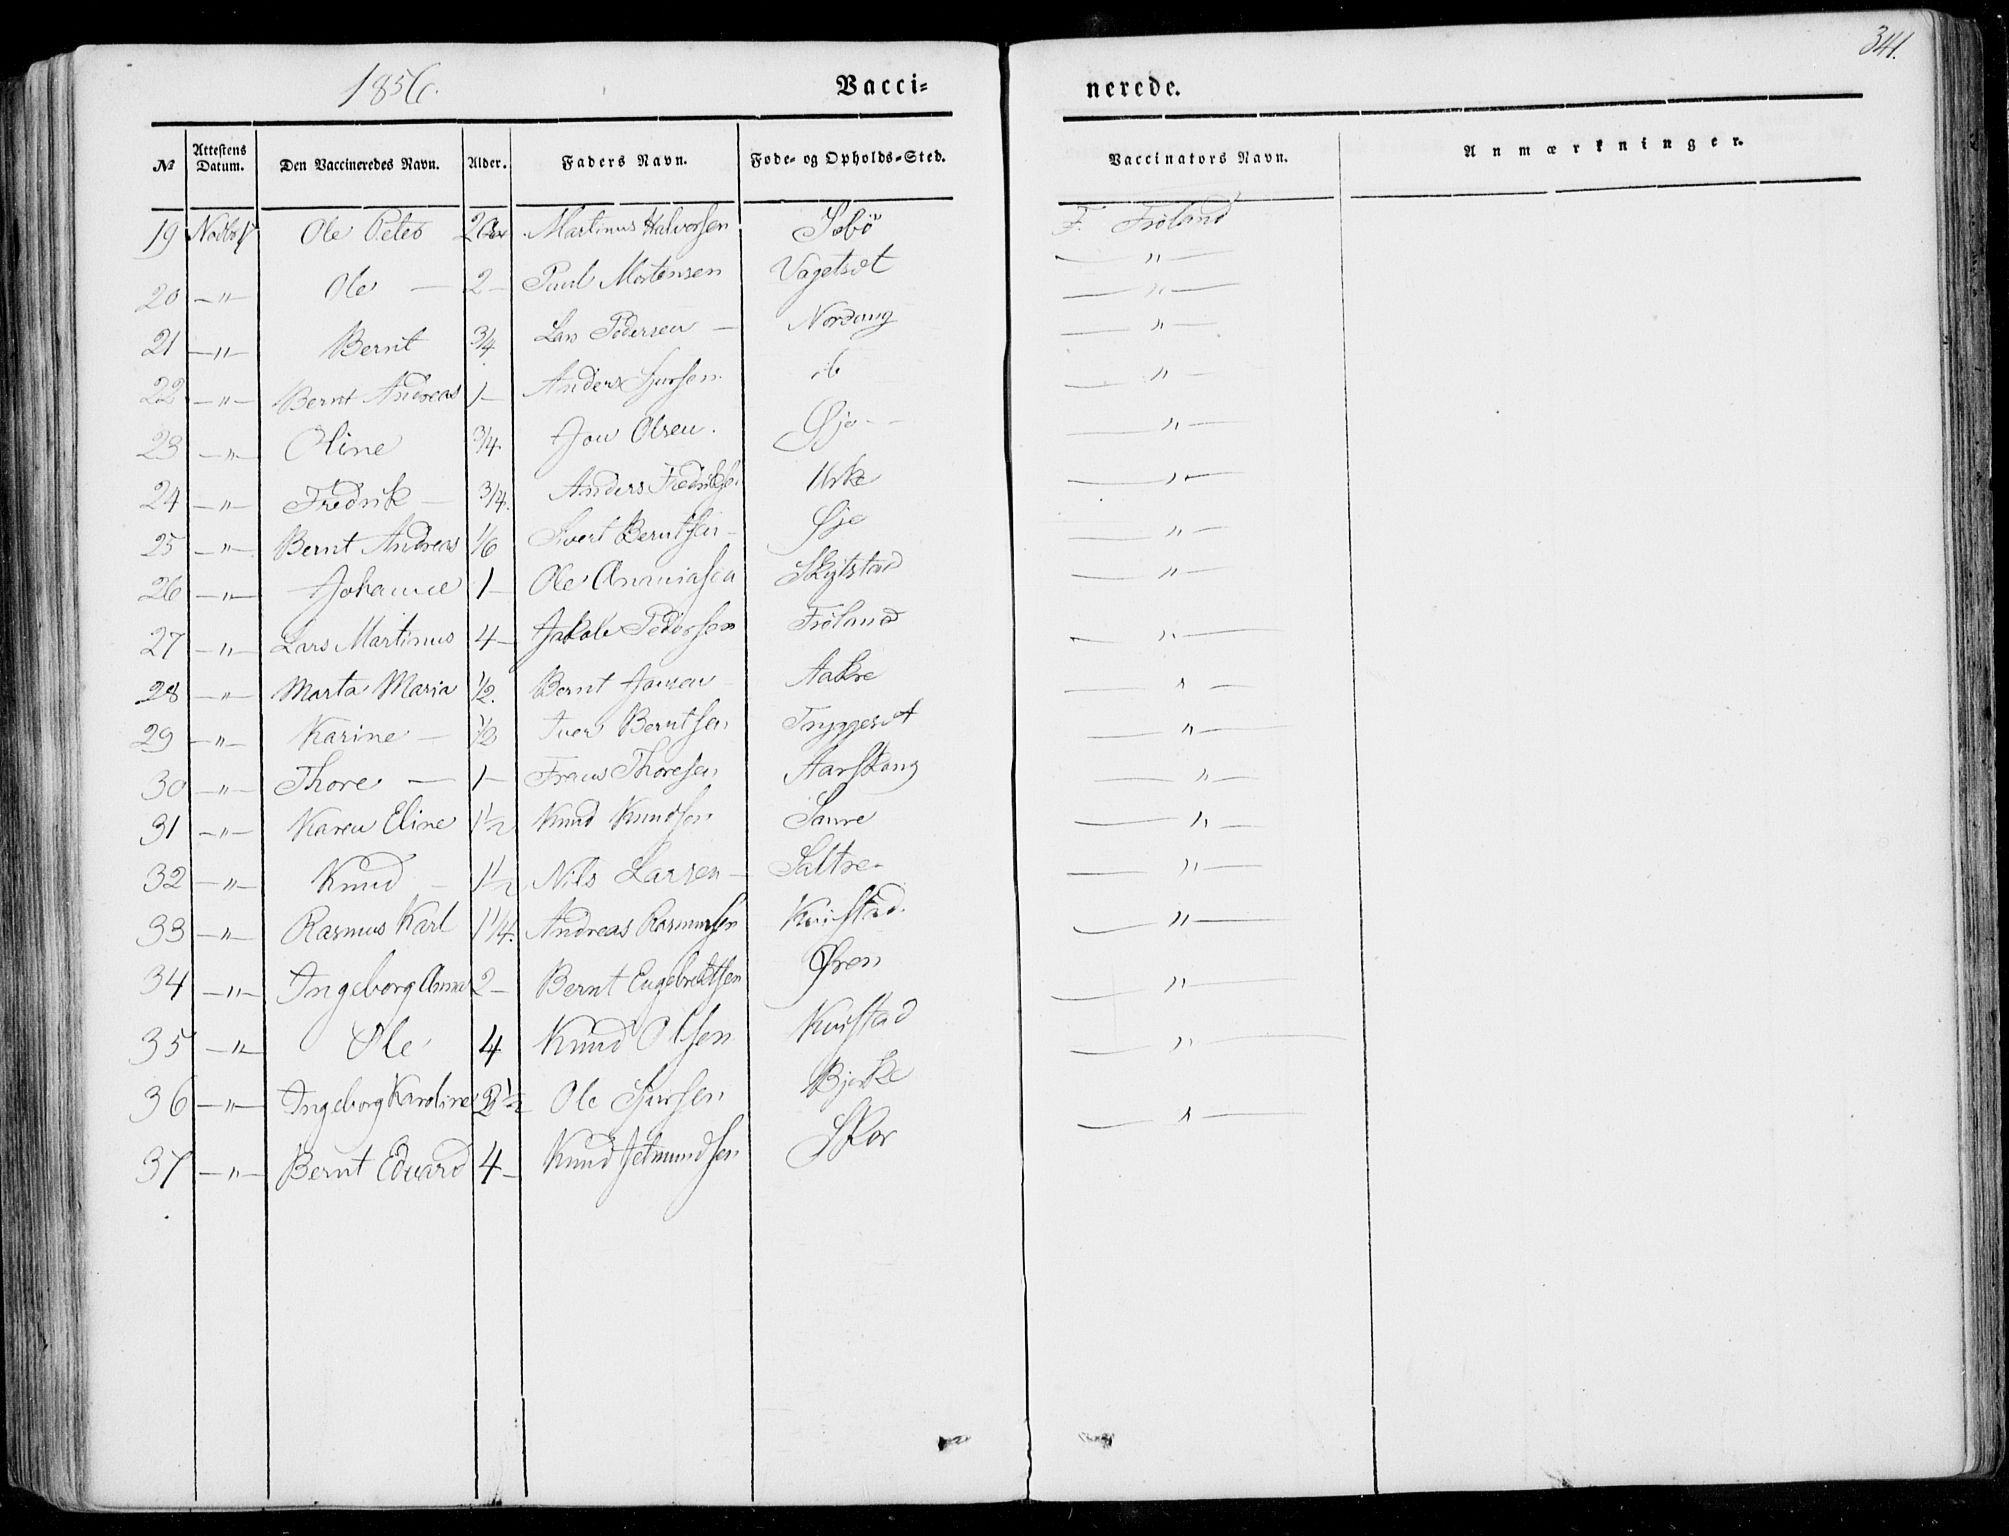 1856.
Vacci= nerede.
341.
No Attestens Datum. Den Vaccineredes Navn. Alder. Faders Navn. Føde- og Opholds=Sted. Vaccinators Navn. Anmærkninger.
19 Ole Peter 2 Aar Martinus Halvorsen Sæbö F. Fröland
20 —"— Ole — 2 — Paul Mortensen —"—
21 —"— Bernt 3/4 Lars Pedersen — Nordang —"—
22 —"— Bernt Andreas 1— Anders Sjursen ib —"—
23 —"— Oline 3/4. Jon Olsen. Øje —"—
24 —"— Fredrik — 3/4. Anders Fredriksen Urke —"—
25 —"— Bernt Andreas 1/6 Sivert Berntsen — Øje —"—
26 —"— Johanne 1— Ole Ananiasen Skylstad —"—
27 —"— Lars Martinus 4— Jakob Pedersen Fröland —"—
28 —"— Marta Maria 1/2. Bernt Jonsen Aakre —"—
29 —"— Karine — 1/2 Iver Berntsen Tryggeset —"—
30 —"— Thore — 1— Frans Thoresen Aarskong —"—
31 —"— Karen Eline 1 1/2 Knud Knudsen Saure —"—
32 —"— Knud — 1 1/2 Nils Larsen — Saltre —"—
33 —"— Rasmus Karl 1 1/4. Andreas Rasmussen Kvistad. —"—
34 —"— Ingeborg Anna 2— Bernt Engebretsen Øren —"—
35 —"— Ole 4 Knud Olsen Kvistad —"—
36 —"— Ingeborg Karoline 2 1/2 Ole Sjursen Bjerke —"—
37 —"— Bernt Edvard 4— Knud Jetmundsen Skor